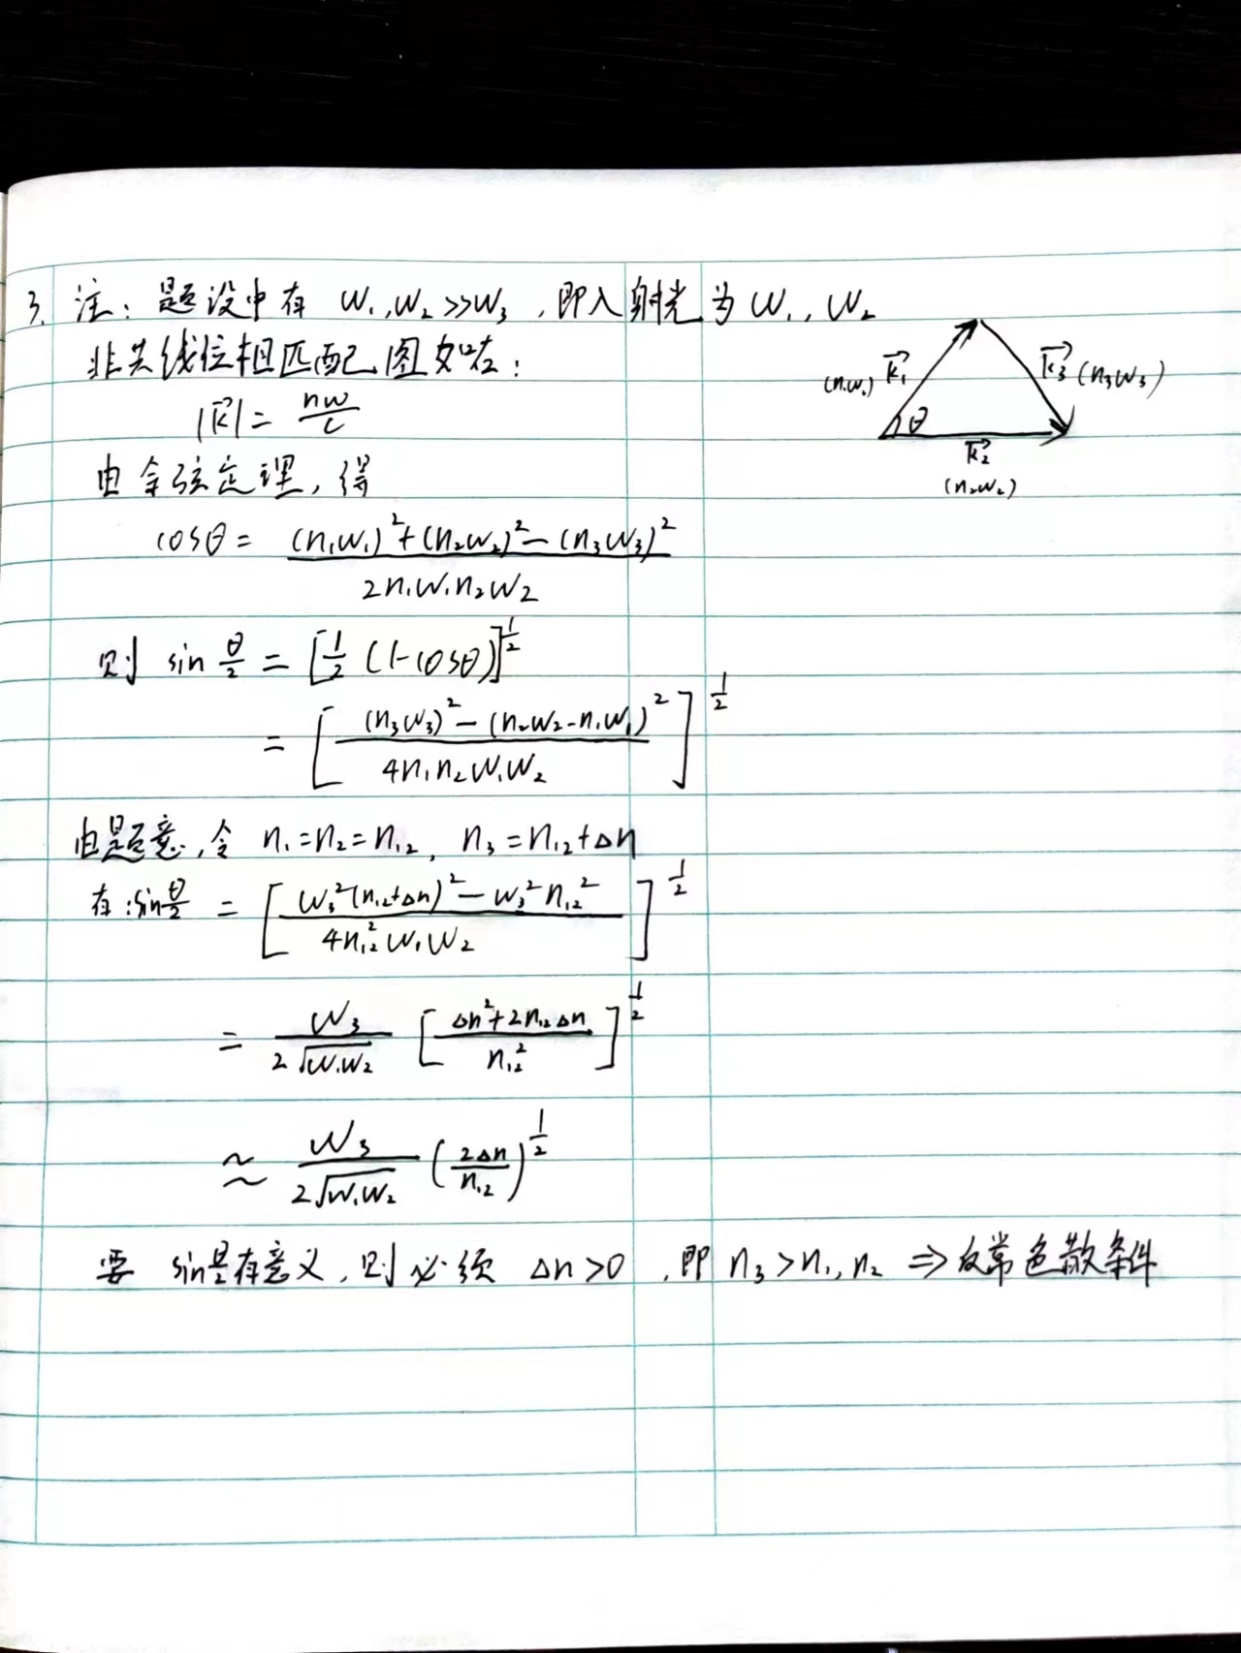 3. 注：题设中有 W₁,W₂>>W₃，即入射光为W₁, W₂
非共线位相匹配图如右：
|k⃗|= nw/c
k⃗₁ (n₁w₁)
k⃗₃ (n₃w₃)
θ
k⃗₂
(n₂w₂)
由余弦定理，得
cosθ = [(n₁w₁)²+(n₂w₂)²-(n₃w₃)²] / 2n₁w₁n₂w₂
则 sin θ/2 = [1/2 (1-cosθ)]^1/2
= [ ((n₃w₃)²-(n₂w₂-n₁w₁)²) / 4n₁n₂w₁w₂ ]^1/2
由题意，令 n₁=n₂=n₁₂, n₃=n₁₂+Δn
有：sin θ/2 = [ (w₃²(n₁₂+Δn)²-w₃²n₁₂²) / 4n₁₂²w₁w₂ ]^1/2
= w₃ / 2√w₁w₂ [ (Δn²+2n₁₂Δn) / n₁₂² ]^1/2
≈ w₃ / 2√w₁w₂ (2Δn / n₁₂)^1/2
要 sin θ/2 有意义，则必须 Δn>0，即 n₃>n₁, n₂ ⇒ 反常色散条件